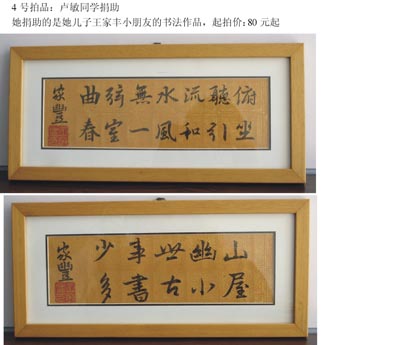 4 号拍品：卢敏同学捐助
她捐助的是她儿子王家丰小朋友的书法作品，起拍价：80 元起
俯聽流水無弦曲
坐引和風一室春
家豐
山幽世事少
屋小古書多
家豐